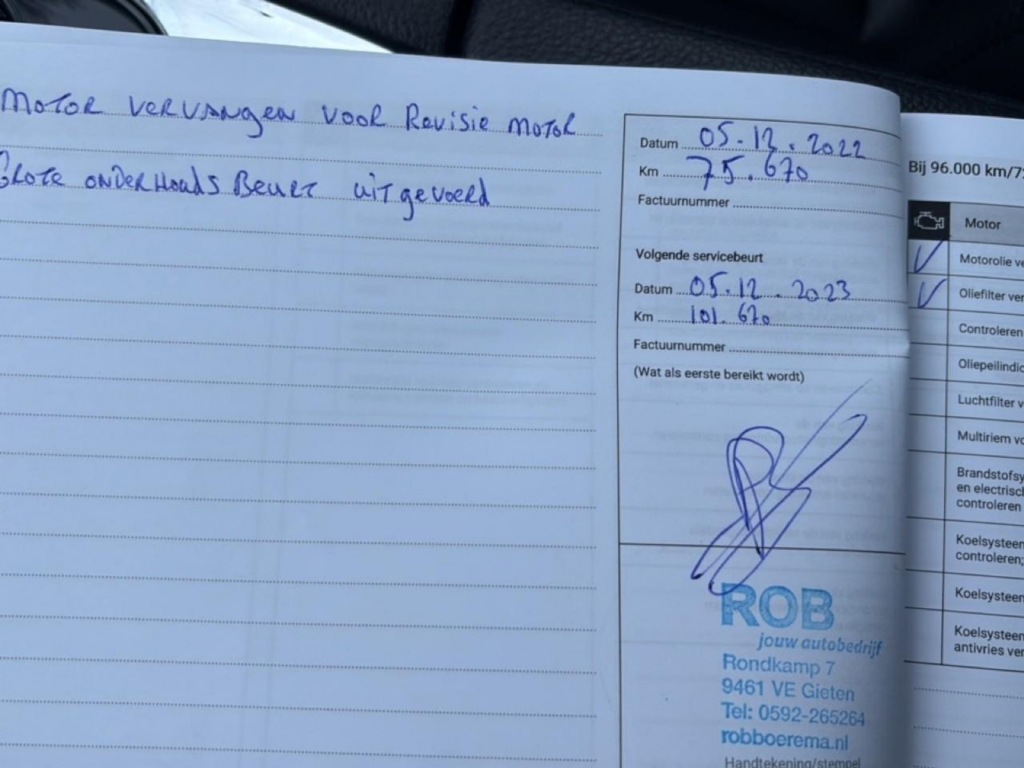 MOTOR VERVANGEN VOOR Revisie MOTOR
GROTE ONDERHOUDS BEURT uitgevoerd
Datum 05.12.2022
Km 75.670
Factuurnummer
Volgende servicebeurt
Datum 05.12.2023
Km 101.670
Factuurnummer
(Wat als eerste bereikt wordt)
ROB
jouw autobedrijf
Rondkamp 7
9461 VE Gieten
Tel: 0592-265264
robboerema.nl
Handtekening/stempel
Bij 96.000 km/7
Motor
Motorolie ve
Oliefilter ver
Controleren
Oliepeilindic
Luchtfilter v
Multiriem vo
Brandstofsy
en electrisch
controleren
Koelsysteem
controleren;
Koelsysteem
Koelsysteem
antivries ver